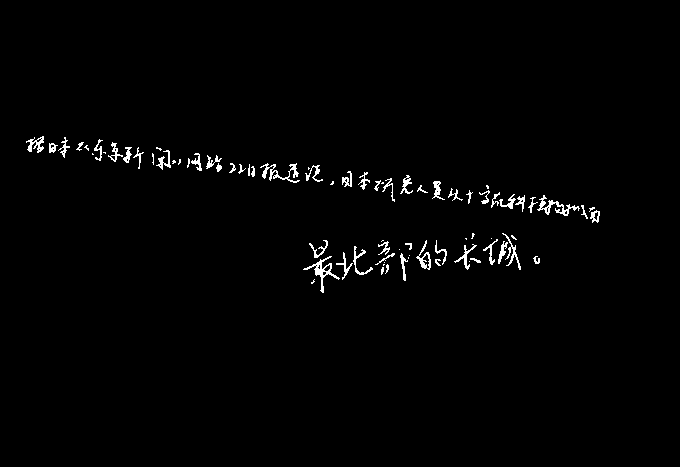 据日本《东京新闻》网站22日报道说,日本研究人员从十字花科植物
最北部的长城。